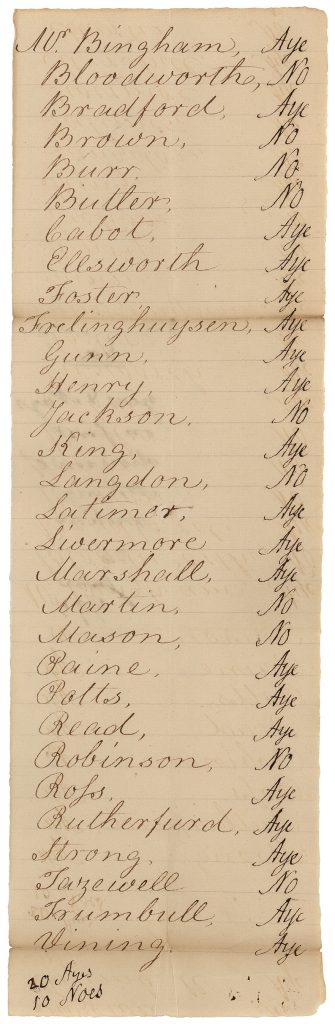 Mr Bingham, Aye
Bloodworth, No
Bradford, Aye
Brown, No
Burr. No
Butler, No
Cabot, Aye
Ellsworth Aye
Foster, Aye
Frelinghuysen, Aye
Gunn, Aye
Henry, Aye
Jackson, No
King, Aye
Langdon, No
Latimer, Aye
Livermore Aye
Marshall, Aye
Martin, No
Mason, No
Paine, Aye
Potts, Aye
Read, Aye
Robinson, No
Ross, Aye
Rutherfurd, Aye
Strong, Aye
Tazewell No
Trumbull, Aye
Vining. Aye
20 Ayes
10 Noes